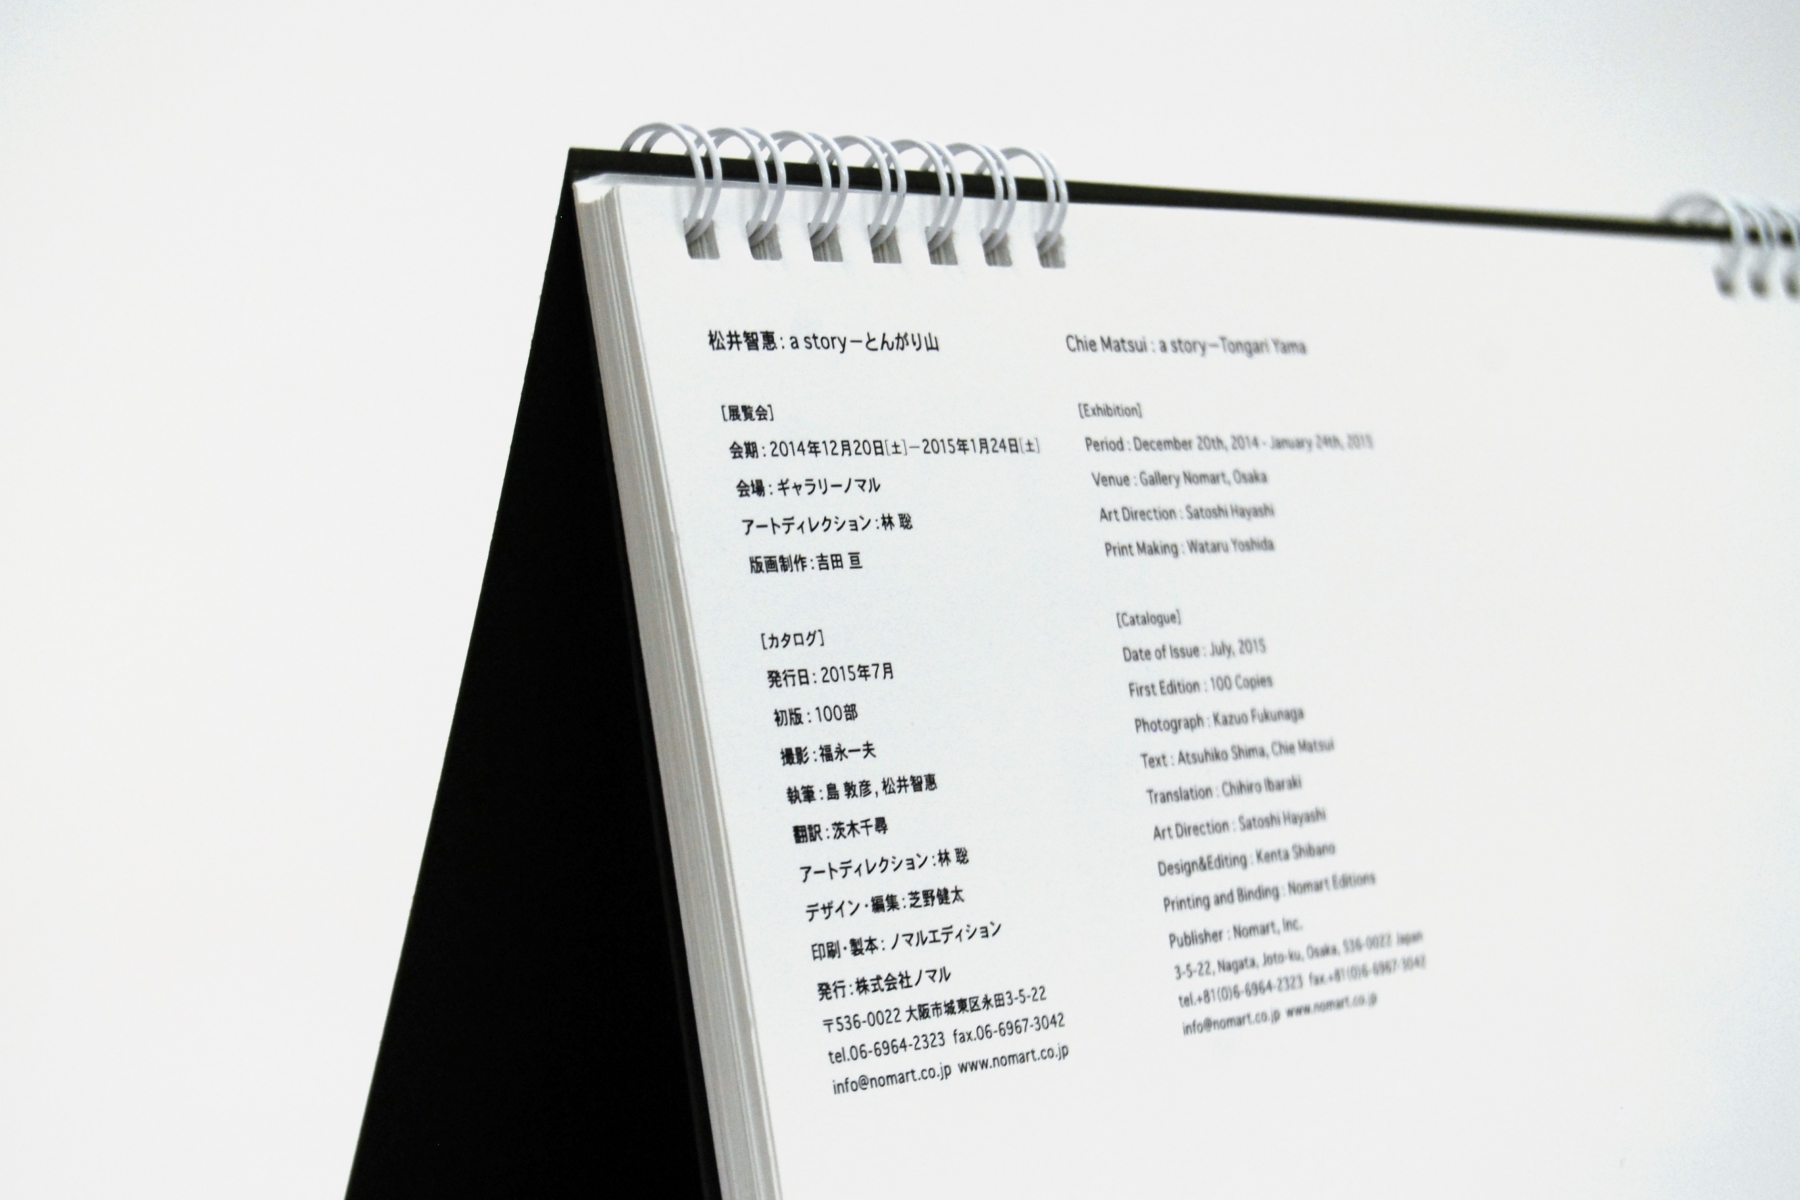 松井智惠 : a story－とんがり山
[展覧会]
会期 : 2014年12月20日[土]－2015年1月24日[土]
会場 : ギャラリーノマル
アートディレクション : 林 聡
版画制作 : 吉田 亘
[カタログ]
発行日 : 2015年7月
初版 : 100部
撮影 : 福永一夫
執筆 : 島 敦彦, 松井智惠
翻訳 : 茨木千尋
アートディレクション : 林 聡
デザイン・編集 : 芝野健太
印刷・製本 : ノマルエディション
発行 : 株式会社ノマル
〒536-0022 大阪市城東区永田3-5-22
tel.06-6964-2323 fax.06-6967-3042
info@nomart.co.jp www.nomart.co.jp
Chie Matsui : a story－Tongari Yama
[Exhibition]
Period : December 20th, 2014 - January 24th, 2015
Venue : Gallery Nomart, Osaka
Art Direction : Satoshi Hayashi
Print Making : Wataru Yoshida
[Catalogue]
Date of Issue : July, 2015
First Edition : 100 Copies
Photograph : Kazuo Fukunaga
Text : Atsuhiko Shima, Chie Matsui
Translation : Chihiro Ibaraki
Art Direction : Satoshi Hayashi
Design&Editing : Kenta Shibano
Printing and Binding : Nomart Editions
Publisher : Nomart, Inc.
3-5-22, Nagata, Joto-ku, Osaka, 536-0022 Japan
tel.+81(0)6-6964-2323 fax.+81(0)6-6967-3042
info@nomart.co.jp www.nomart.co.jp